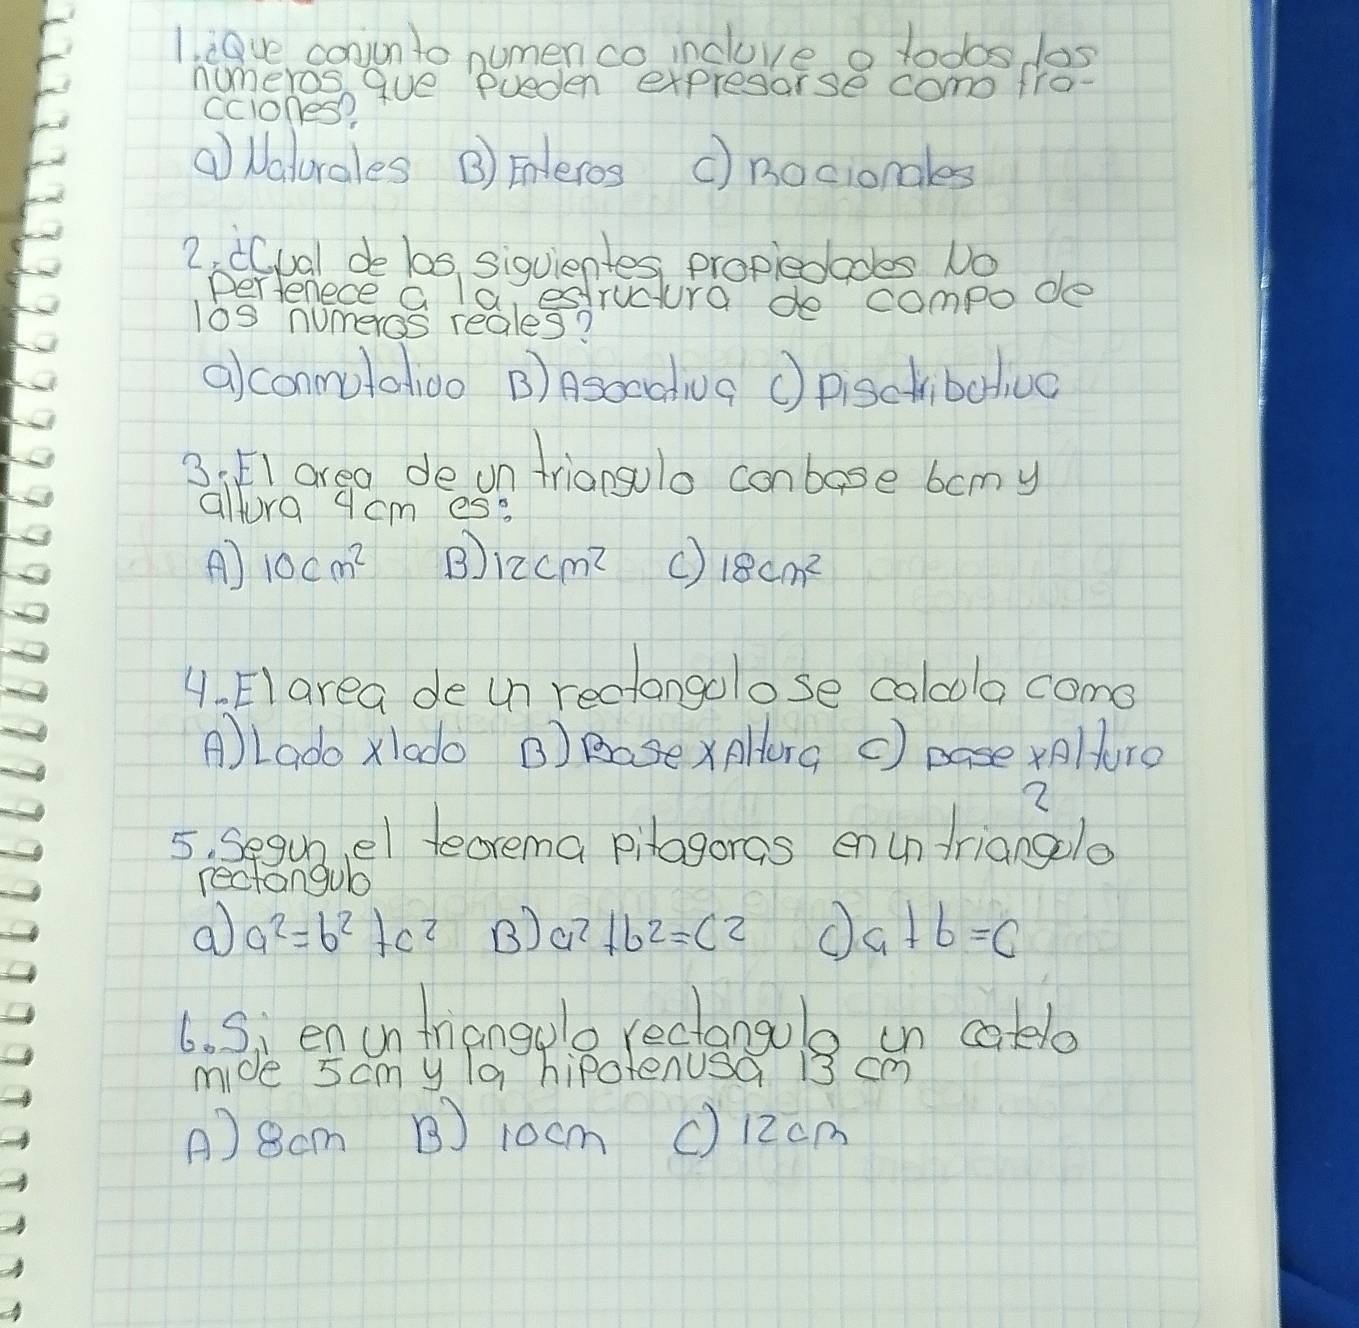 1. ¿Que conjunto numerico incluye a todos los
numeros que pueden expresarse como fra-
cciones?
a) Naturales B) Enteros C) Racionales
2. ¿Cual de las siguientes propiedades No
pertenece a la estructura de campo de
los numeros reales?
a) conmutatiao B) Asociativa C) Disctributiva
3. El area de un triangulo con base 6cm y
altura 4cm es:
A) 10cm² B) 12cm² C) 18cm²
4. El area de un rectangulo se calcula como
A) Lado x lado B) Base x Altura C) Base x Altura
2
5. Segun el teorema pitagoras en un triangulo
rectangulo
a) a² = b² + c² B) a² + b² = c² C) a + b = c
6. Si en un triangulo rectangulo un cateto
mide 5cm y la hipotenusa 13 cm
A) 8cm B) 10cm C) 12cm